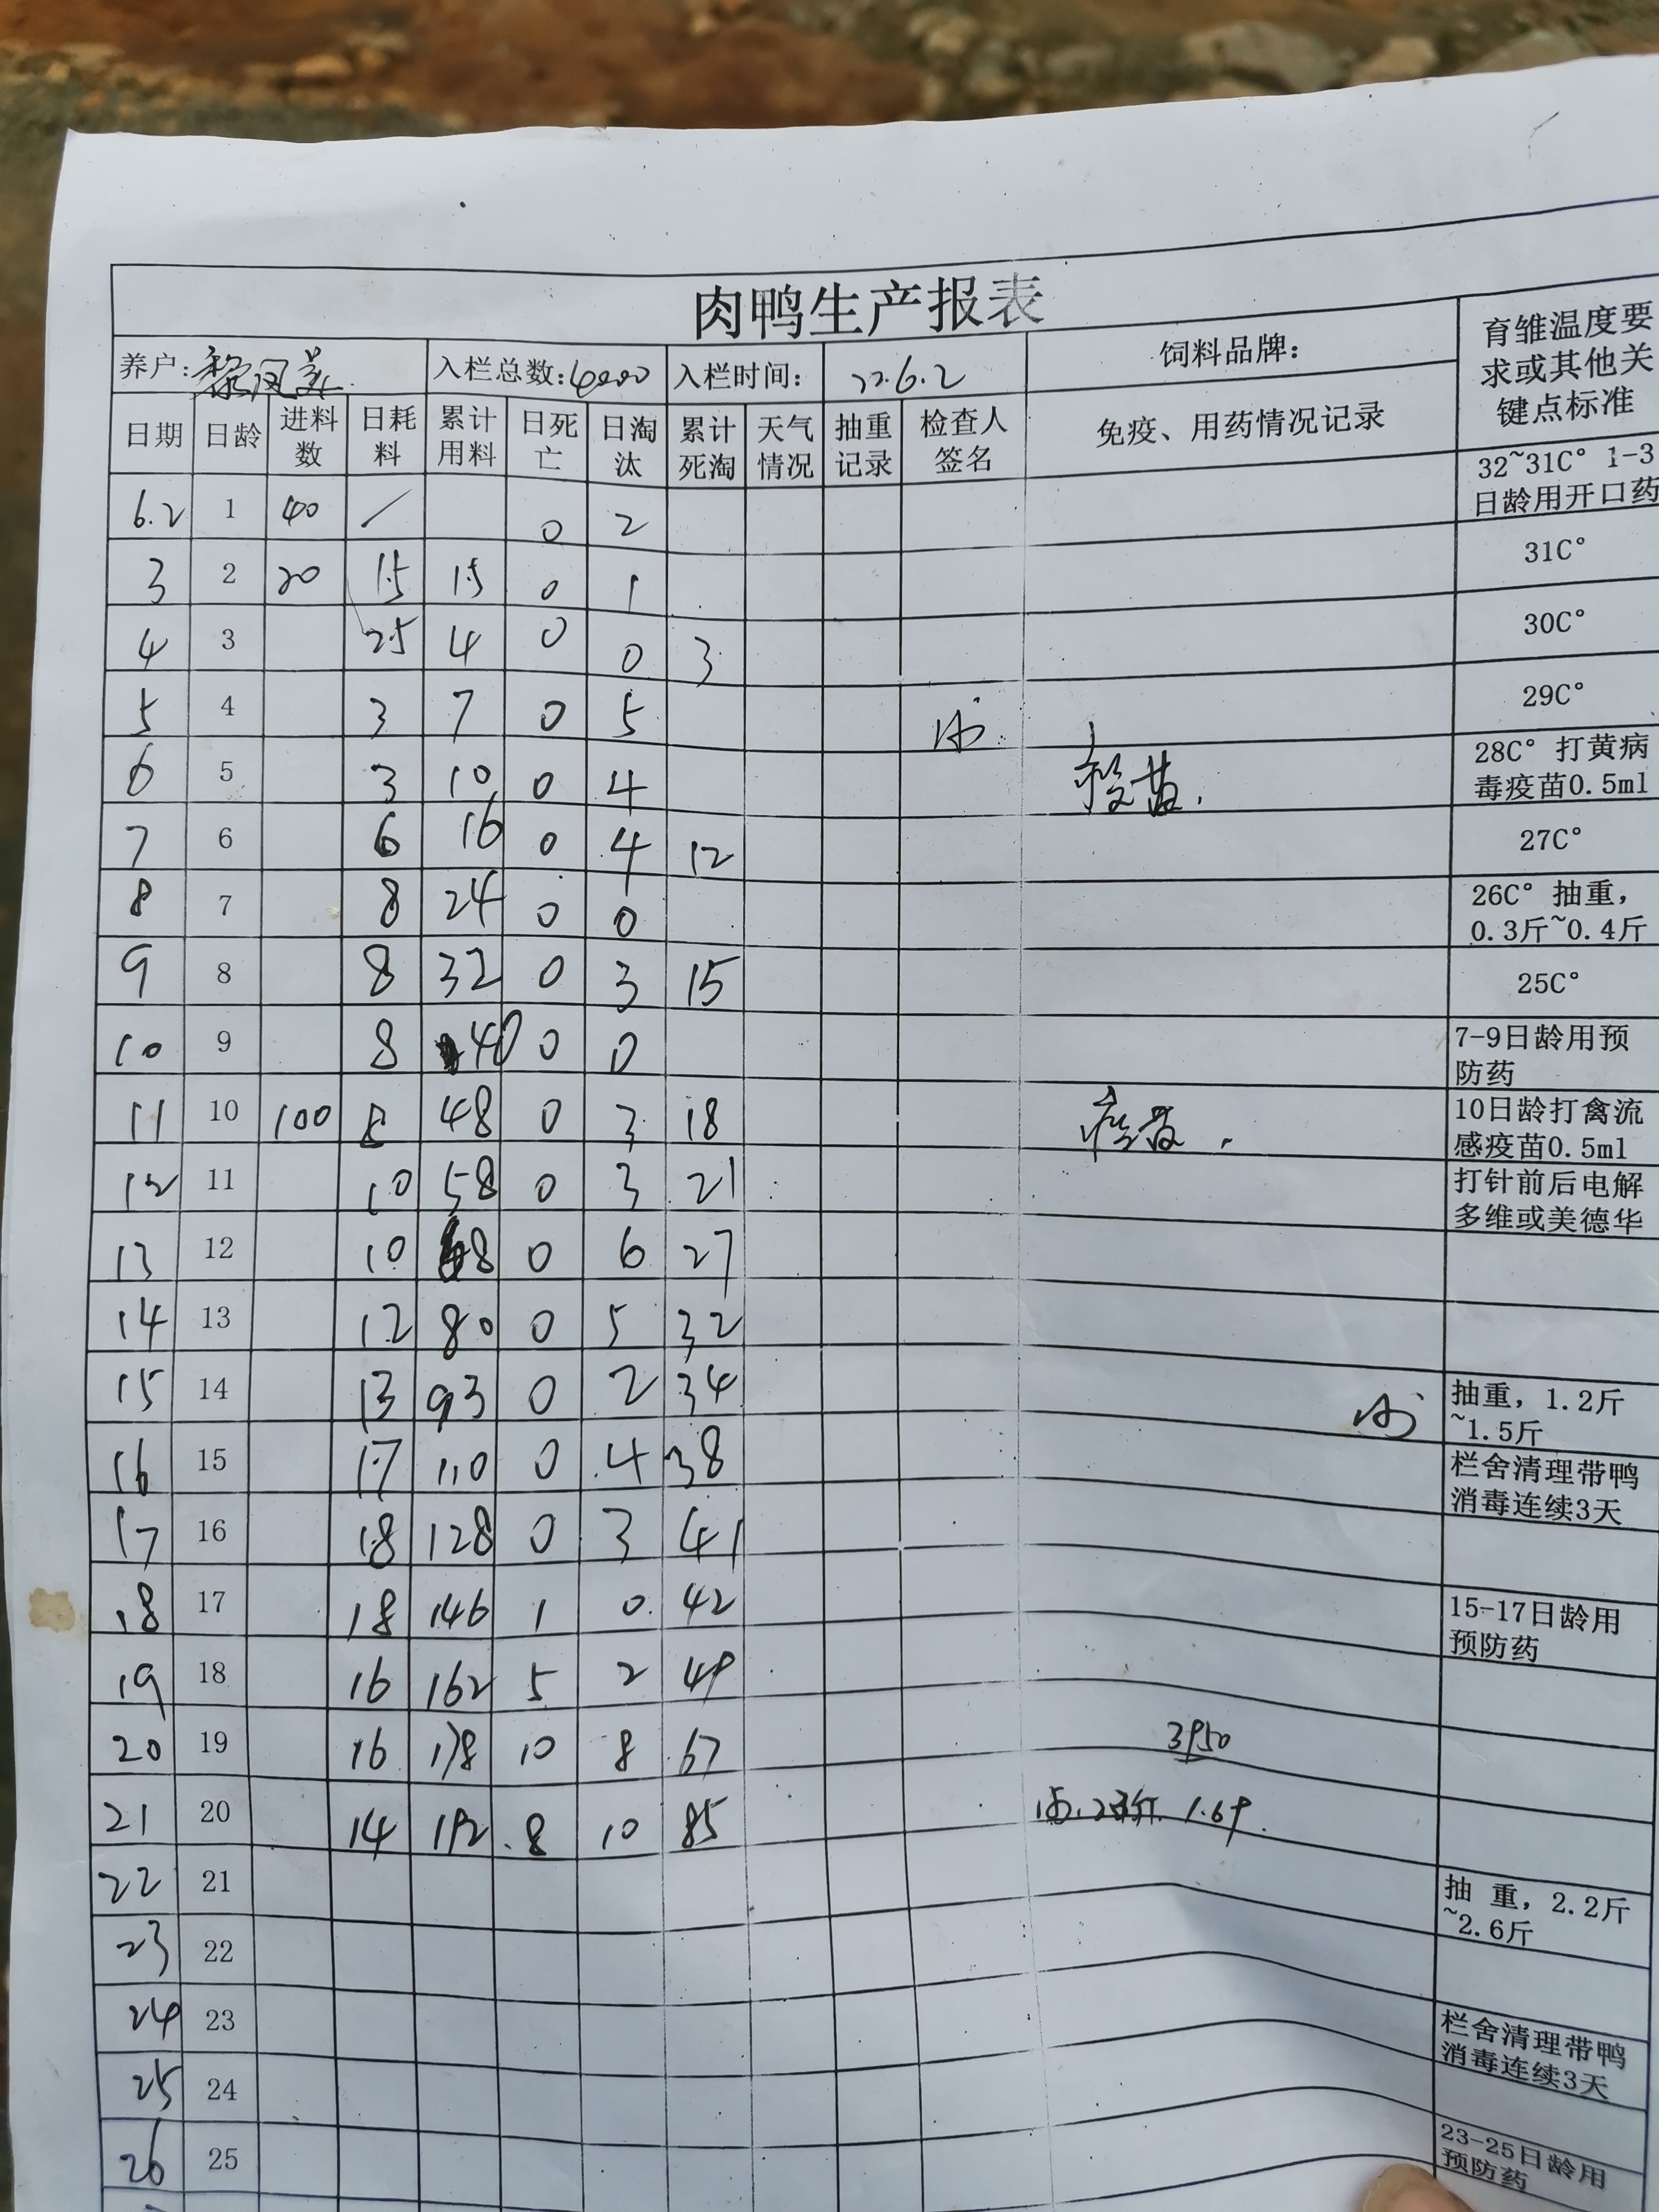 肉鸭生产报表
养户: 黎凤美 入栏总数: 4000 入栏时间: 22.6.2 饲料品牌: 育雏温度要求或其他关键点标准
日期 日龄 进料数 日耗料 累计用料 日死亡 日淘汰 累计死淘 天气情况 抽重记录 检查人签名 免疫、用药情况记录
6.2 1 40 / 0 2 32~31C° 1-3日龄用开口药
3 2 20 1.5 1.5 0 1 31C°
4 3 2.5 4 0 0 3 30C°
5 4 3 7 0 5 29C°
6 5 3 10 0 4 疫苗. 28C° 打黄病毒疫苗0.5ml
7 6 6 16 0 4 12 27C°
8 7 8 24 0 0 26C° 抽重，0.3斤~0.4斤
9 8 8 32 0 3 15 25C°
10 9 8 40 0 0 7-9日龄用预防药
11 10 100 8 48 0 3 18 疫苗. 10日龄打禽流感疫苗0.5ml
12 11 10 58 0 3 21 打针前后电解多维或美德华
13 12 10 68 0 6 27
14 13 12 80 0 5 32
15 14 13 93 0 2 34 抽重，1.2斤~1.5斤
16 15 17 110 0 4 38 栏舍清理带鸭消毒连续3天
17 16 18 128 0 3 41
18 17 18 146 1 0 42 15-17日龄用预防药
19 18 16 162 5 2 49
20 19 16 178 10 8 67 3950
21 20 14 192 8 10 85 1.69.
22 21 抽 重，2.2斤~2.6斤
23 22
24 23 栏舍清理带鸭消毒连续3天
25 24
26 25 23-25日龄用预防药